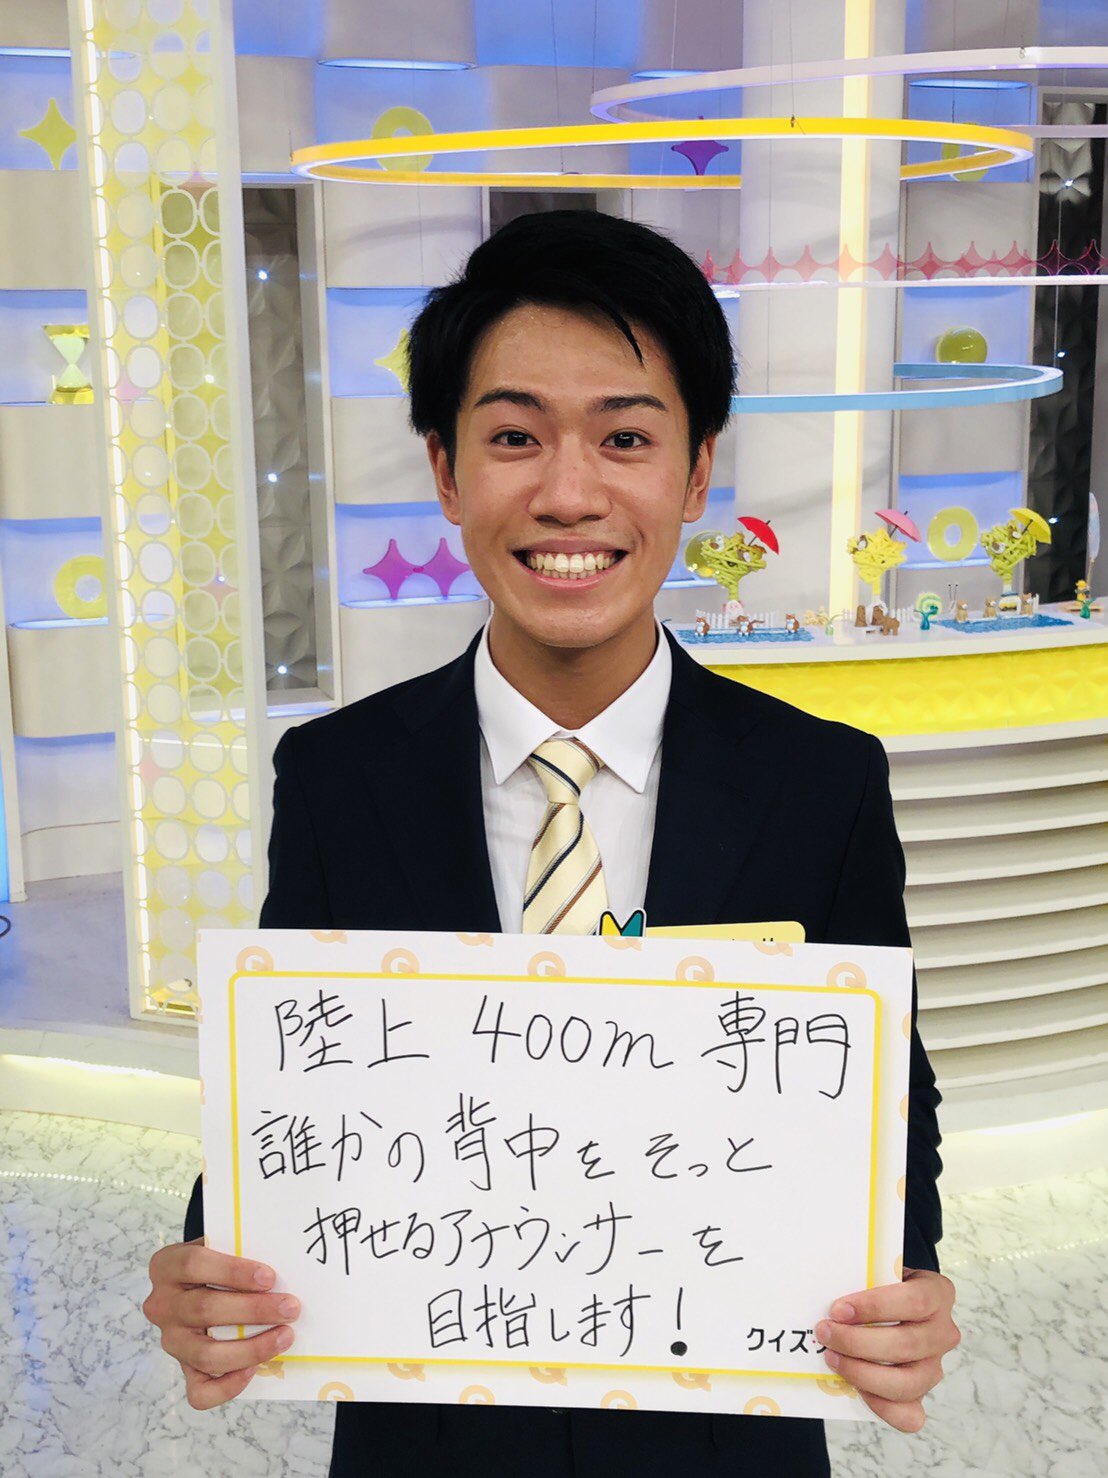 陸上 400m 専門
誰かの背中をそっと
押せるアナウンサーを
目指します!
クイズ